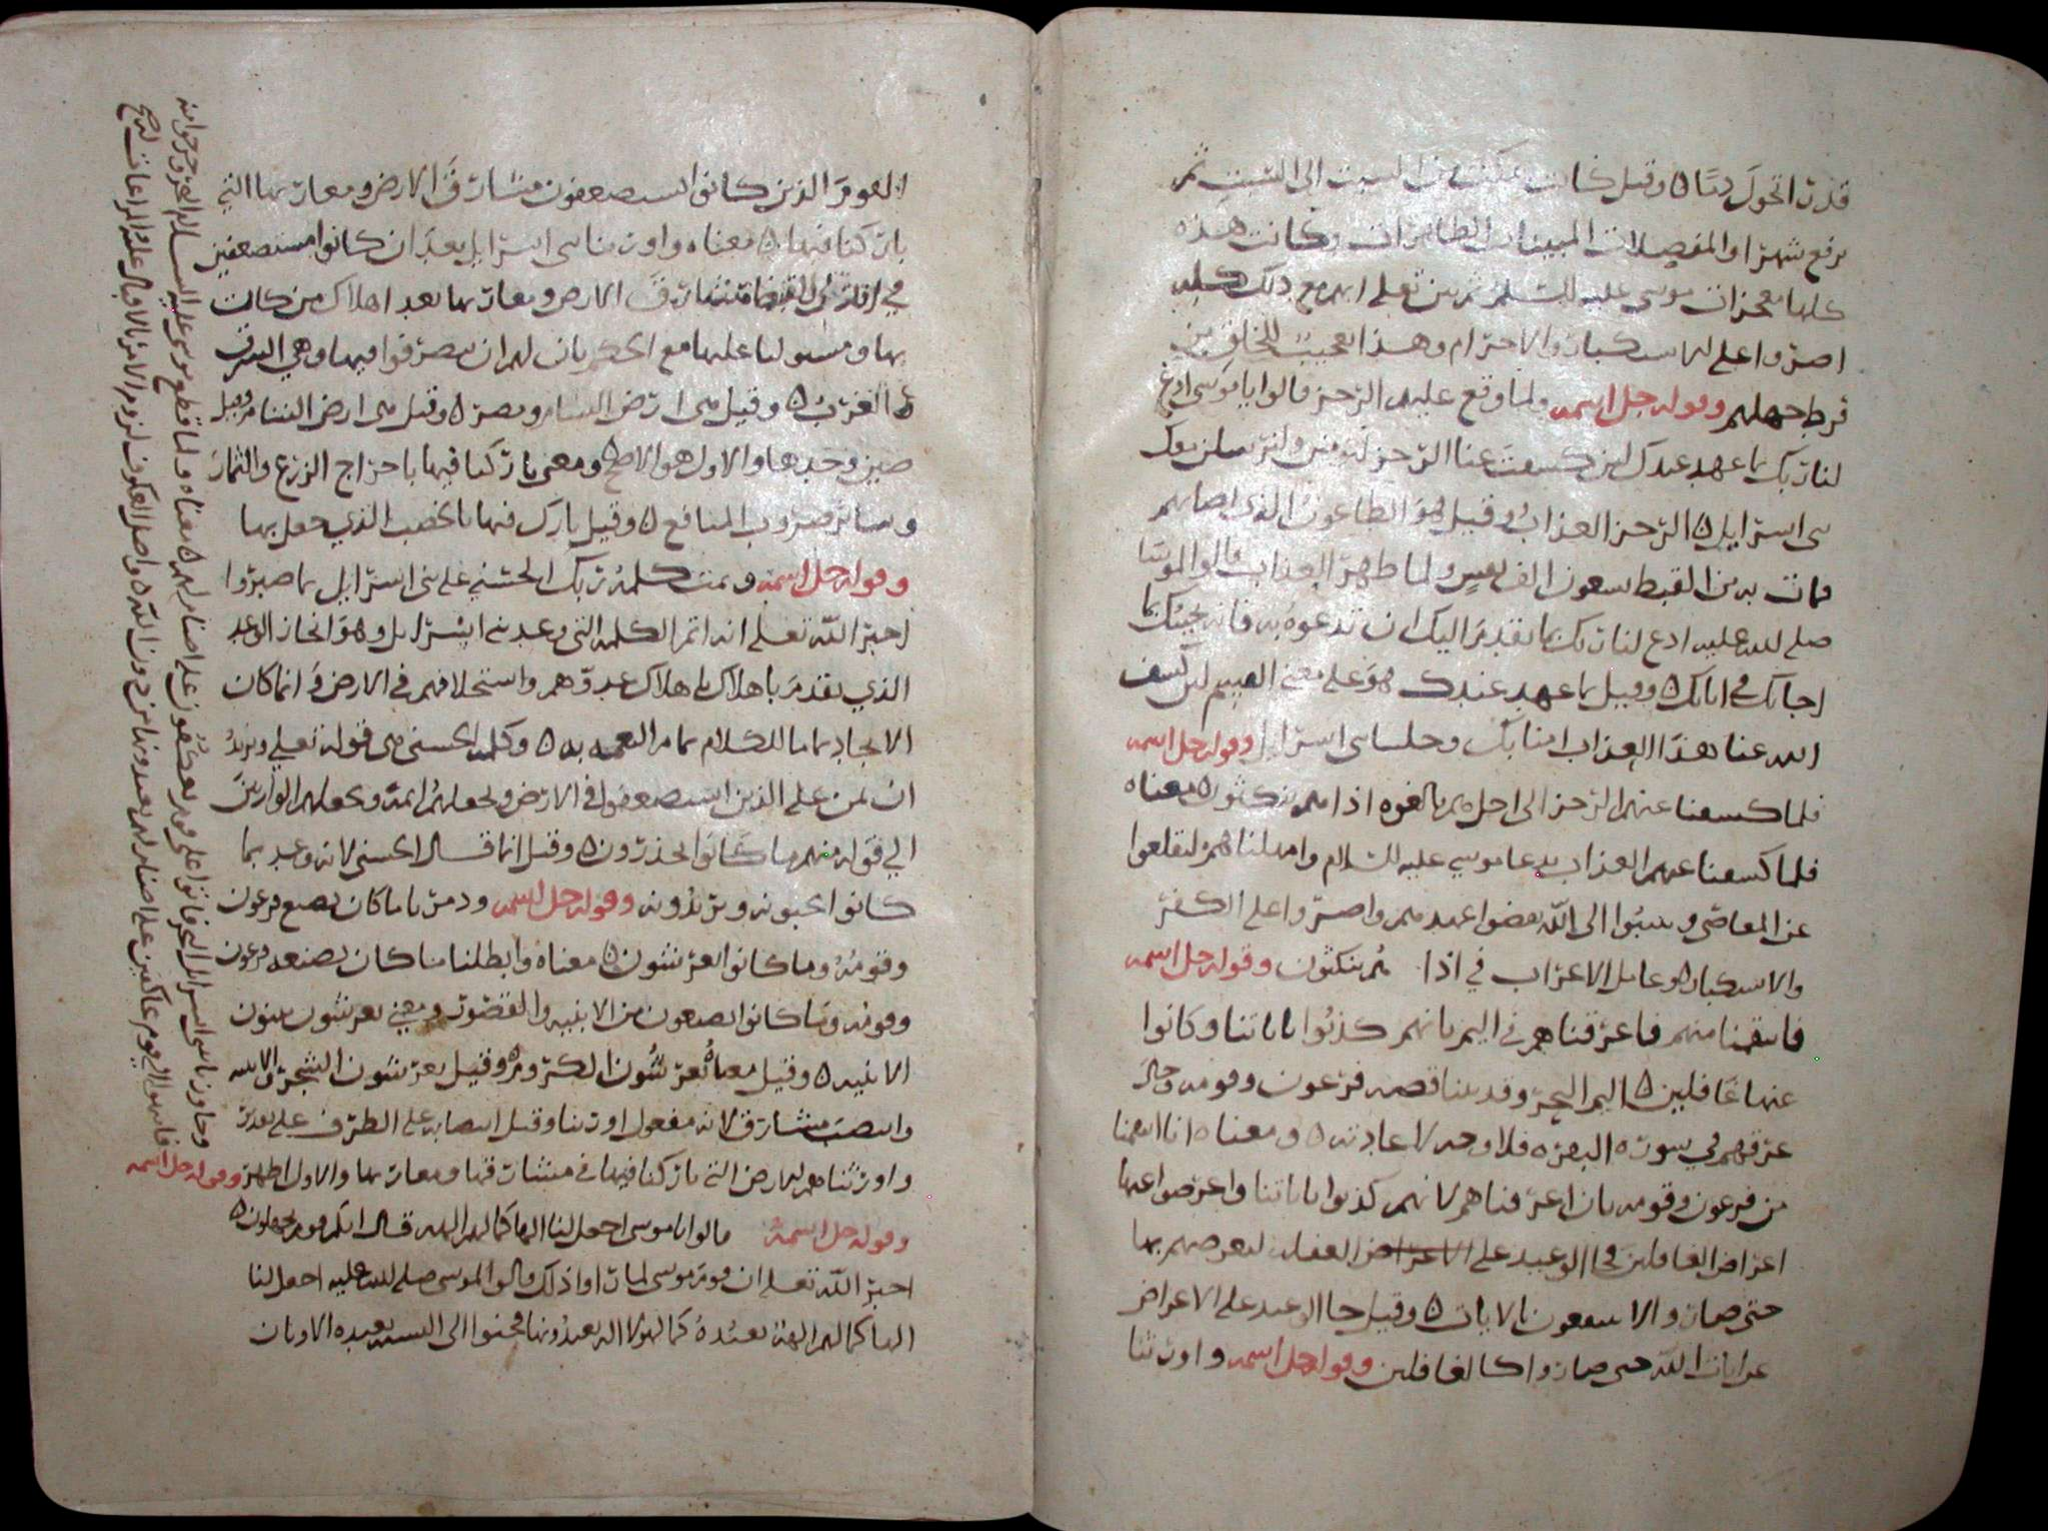 قدرت اتحول دمًا ٥ وقيل كانت تمكث من السبت الى السبت ثم
ترفع شهرًا والمفصلات المبينات الظاهرات وكانت هذه
كلها معجزات موسى عليه السلم ثم بين تعلى انهم مع ذلك كله
اصروا على الاستكبار والاجترام وهذا تعجيب للخلق من
فرط جهلهم وقوله جل اسمه ولما وقع عليهم الرجز قالوا يا موسى ادع
لنا ربك بما عهد عندك لين كشفت عنا الرجز لنومنن ولنرسلن معك
بنى اسرايل ٥ الرجز العذاب وقيل هو الطاعون الذى اصابهم
فمات به من القبط سبعون الف نفس ولما ظهر العذاب قالوا لموسا
صلى الله عليه ادع لنا ربك بما تقدم اليك ان تدعوه به فانه يجيبك كما
اجابك في اياتك ٥ وقيل بما عهد عندك فهو على معنى القسم لين كشف
الله عنا هذا العذاب امنا بك وخلينا بنى اسرايل وقوله جل اسمه
فلما كشفنا عنهم الرجز الى اجل هم بالغوه اذا هم ينكثون ٥ معناه
فلما كشفنا عنهم العذاب بدعا موسى عليه السلام وامهلناهم ليقلعوا
عن المعاصي وينيبوا الى الله نقضوا عهدهم واصروا على الكفر
والاستكبار ٥ وعامل الاعراب في اذا هم ينكثون وقوله جل اسمه
فانتقمنا منهم فاغرقناهم في اليم بانهم كذبوا باياتنا وكانوا
عنها غافلين ٥ اليم البحر وقد بينا قصة فرعون وقومه وحال
غرقهم في سورة البقرة فلا وجه لاعادته ٥ ومعناه انا انتقمنا
من فرعون وقومه بان اغرقناهم لانهم كذبوا باياتنا واعرضوا عنها
اعراض الغافلين فجا الوعيد على الغفلة لتعرضهم بها
حتى صاروا لا ينتفعون بالايات ٥ وقيل جا الوعيد على الاعراض
عن ايات الله حتى صاروا كالغافلين وقوله جل اسمه واورثنا
القوم الذين كانوا يستضعفون مشارق الارض ومغاربها التي
باركنا فيها ٥ معناه واورثنا بنى اسرايل بعد ان كانوا مستضعفين
في ايدي القبط مشارق الارض ومغاربها بعد اهلاك من كان
بها ومستوليا عليها مع الحكم بان لهم ان يتصرفوا فيها وهي الشرق
و الغرب ٥ وقيل هى ارض الشام ومصر ٥ وقيل هى ارض الشام وقيل
مصر وحدها والاول هو الاصح ٥ ومعنى باركنا فيها باخراج الزرع والثمار
وساير ضروب المنافع ٥ وقيل بارك فيها بالخصب الذي جعل بها
وقوله جل اسمه وتمت كلمة ربك الحسنى على بنى اسرايل بما صبروا
اخبر الله تعلى انه اتم الكلمة التى وعد بنى اسرايل وهو انجاز الوعد
الذي تقدم باهلاك عدوهم واستخلافهم في الارض وانما كان
الانجاز تماما للكلام تمام النعمه به ٥ وكلمة الحسنى هى قوله تعلى ونريد
ان نمن على الذين استضعفوا في الارض ونجعلهم ايمة ونجعلهم الوارثين
الى قوله منهم ما كانوا يحذرون ٥ وقيل انما قال الحسنى لانه وعد بما
كانوا يحبونه ويريدونه وقوله جل اسمه ودمرنا ما كان يصنع فرعون
وقومه وما كانوا يعرشون ٥ معناه وابطلنا ما كان يصنعه فرعون
وقومه وما كانوا يصنعون من الابنيه والقصور ومعنى يعرشون يبنون
الابنيه ٥ وقيل معناه يعرشون الكروم وقيل يعرشون الشجر والابنيه
وانتصب مشارق لانه مفعول اورثنا وقيل انتصابه على الظرف على تقدير
واورثناهم الارض التي باركنا فيها في مشارقها ومغاربها والاول اظهر وقوله جل اسمه
وقوله جل اسمه قالوا يا موسى اجعل لنا الها كما لهم الهة قال انكم قوم تجهلون ٥
اخبر الله تعلى ان قوم موسى لما راوا ذلك قالوا لموسى صلى الله عليه اجعل لنا
الها كما لهم الهة نعبده كما لهؤلا الهة يعبدونها فجنحوا الى التشبه بعبدة الاوثان
وجاوزنا ببنى اسرايل البحر فاتوا على قوم يعكفون على اصنام لهم ٥ معناه ولما قطع موسى عليه السلام البحر
فانتهوا الى قوم عاكفين على اصنام لهم يعبدونها من دون الله ٥ واصل العكوف لزوم الامر بالاقبال عليه والمراعاة له